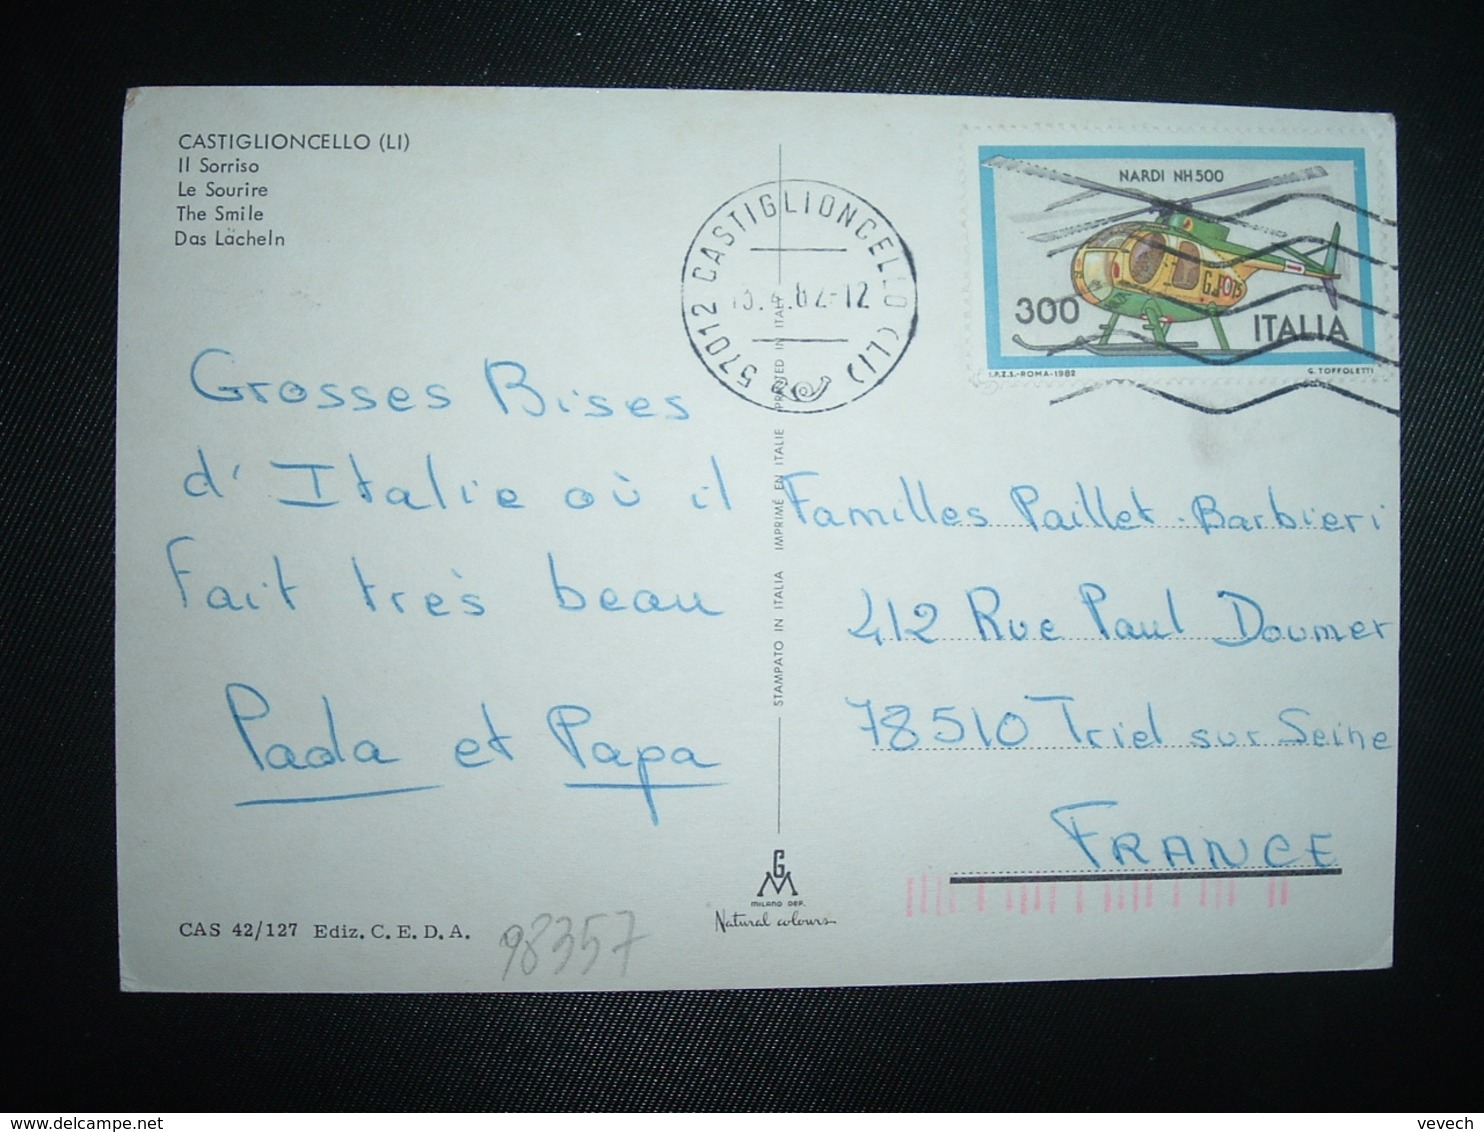 CASTIGLIONCELLO (LI)
Il Sorriso
Le Sourire
The Smile
Das Lächeln
57012 CASTIGLIONCELLO (LI)
.82-12
NARDI NH 500
300
ITALIA
I.P.Z.S.-ROMA-1982
G. TOFFOLETTI
Grosses Bises
d'Italie où il
fait très beau
Paola et Papa
STAMPATO IN ITALIA IMPRIMÉ EN ITALIE PRINTED IN ITALY
Familles Paillet-Barbieri
412 Rue Paul Doumer
78510 Triel sur Seine
FRANCE
GM
MILANO DEP.
Natural colours
CAS 42/127 Ediz. C. E. D. A.
98357
delcampe.net
vevech